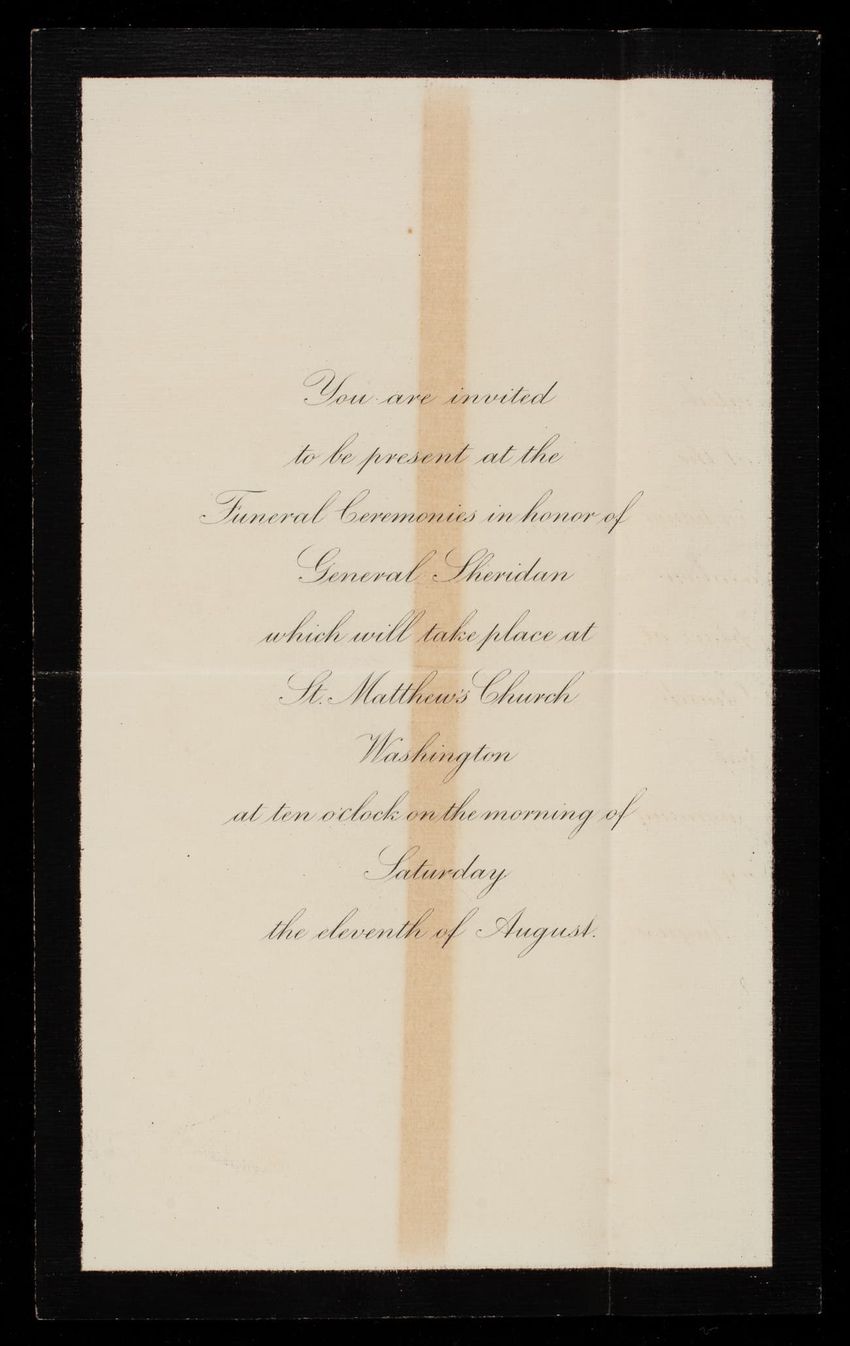 You are invited
to be present at the
Funeral Ceremonies in honor of
General Sheridan
which will take place at
St. Matthew's Church
Washington
at ten o'clock on the morning of
Saturday
the eleventh of August.